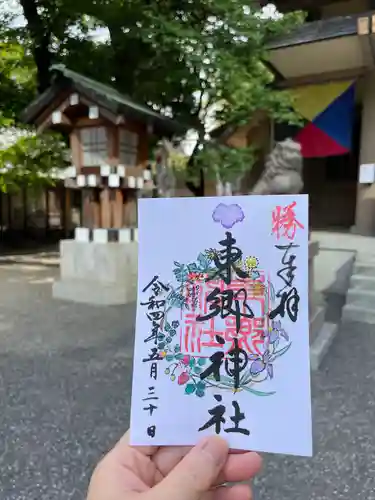 勝
奉拝
東郷神社
令和四年五月三十日